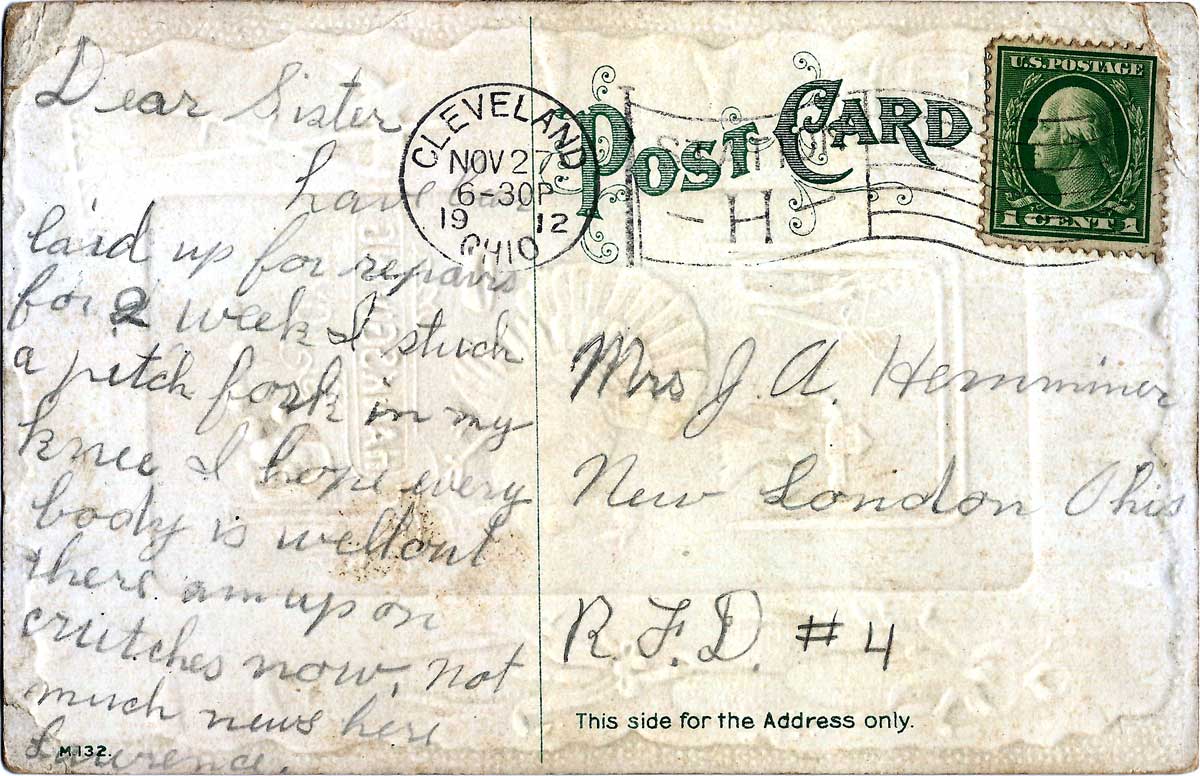 Dear Sister
have
laid up for repairs
for 2 week I stuck
a pitch fork in my
knee I hope every
body is well out
there am up on
crutches now. Not
much news here
Lawrence.
M.132.
CLEVELAND
NOV 27
6-30P
1912
OHIO
STATION
H
POST CARD
U.S. POSTAGE
1 CENT 1
Mrs J. A. Hemminer
New London Ohio
R.F.D. #4
This side for the Address only.